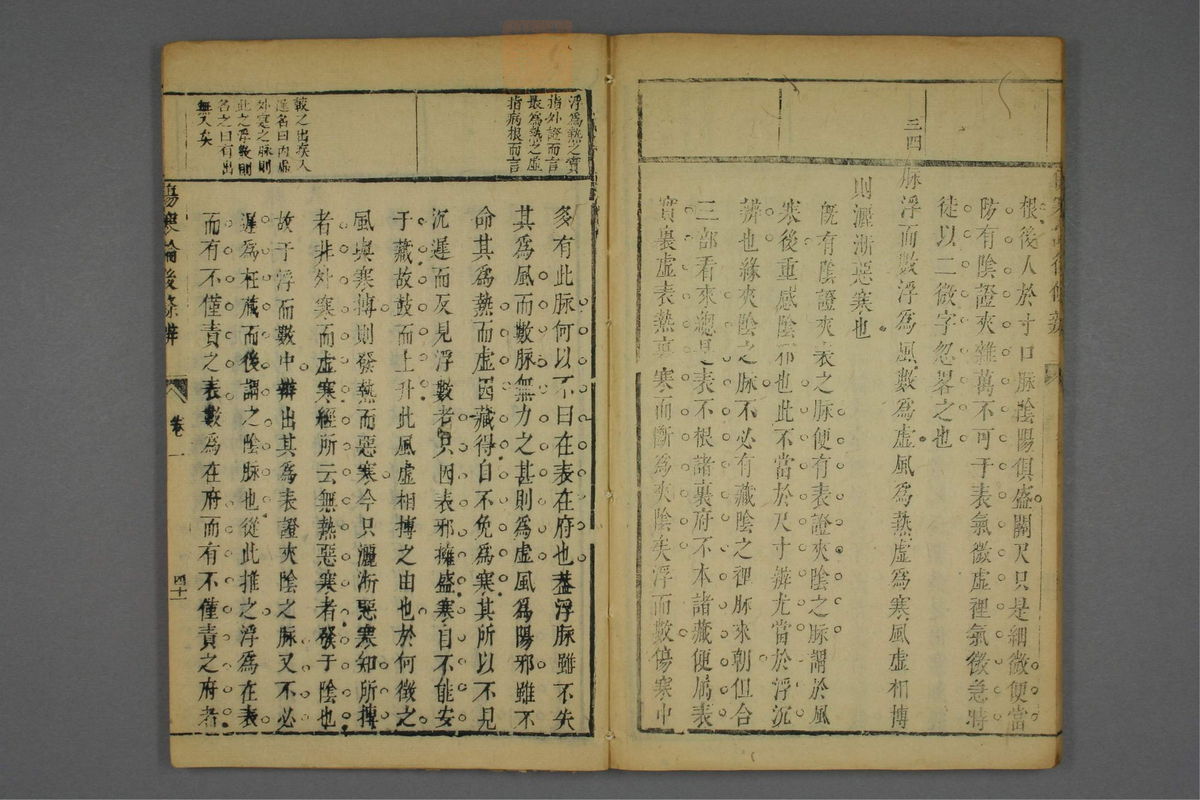 三四
根後人於寸口脉陰陽俱盛關尺只是細微便當
防有陰證夾雜萬不可于表氣微虛裡氣微急時
徒以二微字忽畧之也
脉浮而數浮為風數為虛風為熱虛為寒風虛相搏
則灑淅惡寒也
既有陰證夾表之脉便有表證夾陰之脉謂於風
寒後重感陰邪也此不當於尺寸辨尤當於浮沉
辨也緣夾陰之脉不必有藏陰之裡脉來朝但合
三部看來總是表不根諸裏府不本諸藏便屬表
實裏虛表熱裏寒而斷為夾陰矣浮而數傷寒中
浮為熱之實
指外證而言
最為熱之虛
指病根而言
較之出疾入
遲名曰內虛
外寔之脉則
此之浮數則
名之曰有出
無入矣
多有此脉何以不曰在表在府也葢浮脉雖不失
其為風而數脉無力之甚則為虛風為陽邪雖不
命其為熱而虛因藏得自不免為寒其所以不見
沉遲而反見浮數者只因表邪擁盛寒自不能安
于藏故鼓而上升此風虛相搏之由也於何徵之
風與寒搏則發熱而惡寒今只灑淅惡寒知所搏
者非外寒而虛寒經所云無熱惡寒者發于陰也
故于浮而數中辨出其為表證夾陰之脉又不必
遲為在藏而後謂之陰脉也從此推之浮為在表
而有不僅責之表數為在府而有不僅責之府者
傷寒論後條辨
卷一
四十一